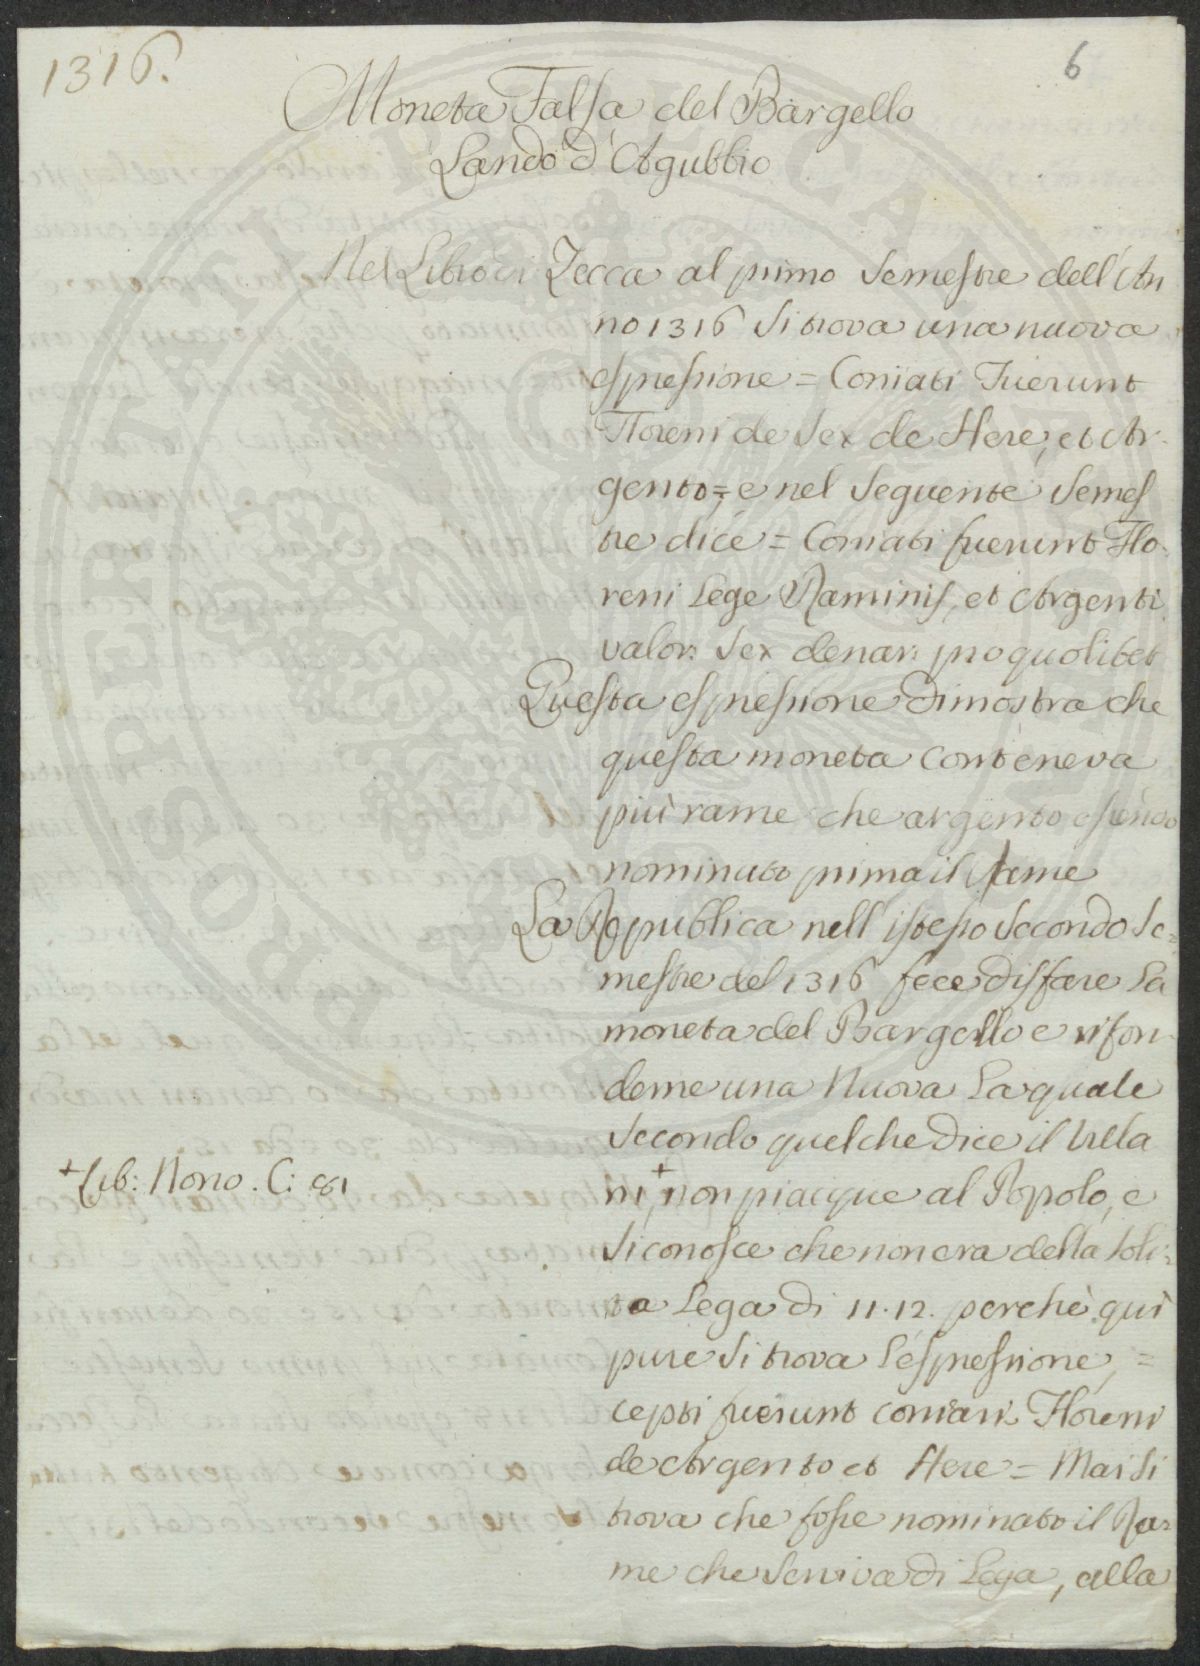 1316.
6
Moneta Falsa del Bargello
Lando d'Agubbio
Nel Libro di Zecca al primo Semestre dell'An
no 1316 si trova una nuova
espressione = Coniati Fuerunt
Floreni de Sex de Here, et Ar-
gento = e nel seguente Semes
tre dice = Coniati fuerunt Flo-
reni Lege Raminis, et Argenti
valor: Sex denar: pro quolibet
Questa espressione dimostra che
questa moneta conteneva
più rame che argento essendo
nominato prima il Rame
La Republica nell'istesso Secondo Se=
mestre del 1316 fece disfare la
moneta del Bargello e rifon-
derne una Nuova la quale
secondo quel che dice il Villa
ni + non piacque al Popolo, e
si conosce che non era della soli=
ta Lega di 11.12. perchè qui
pure si trova l'espressione, =
cepti fuerunt coniari Floreni
de Argento et Here = Mai si
trova che fosse nominato il Ra=
me che serviva di Lega, alla
+ Lib: Nono. C: 81
PROSPERITATI PUBLICAE